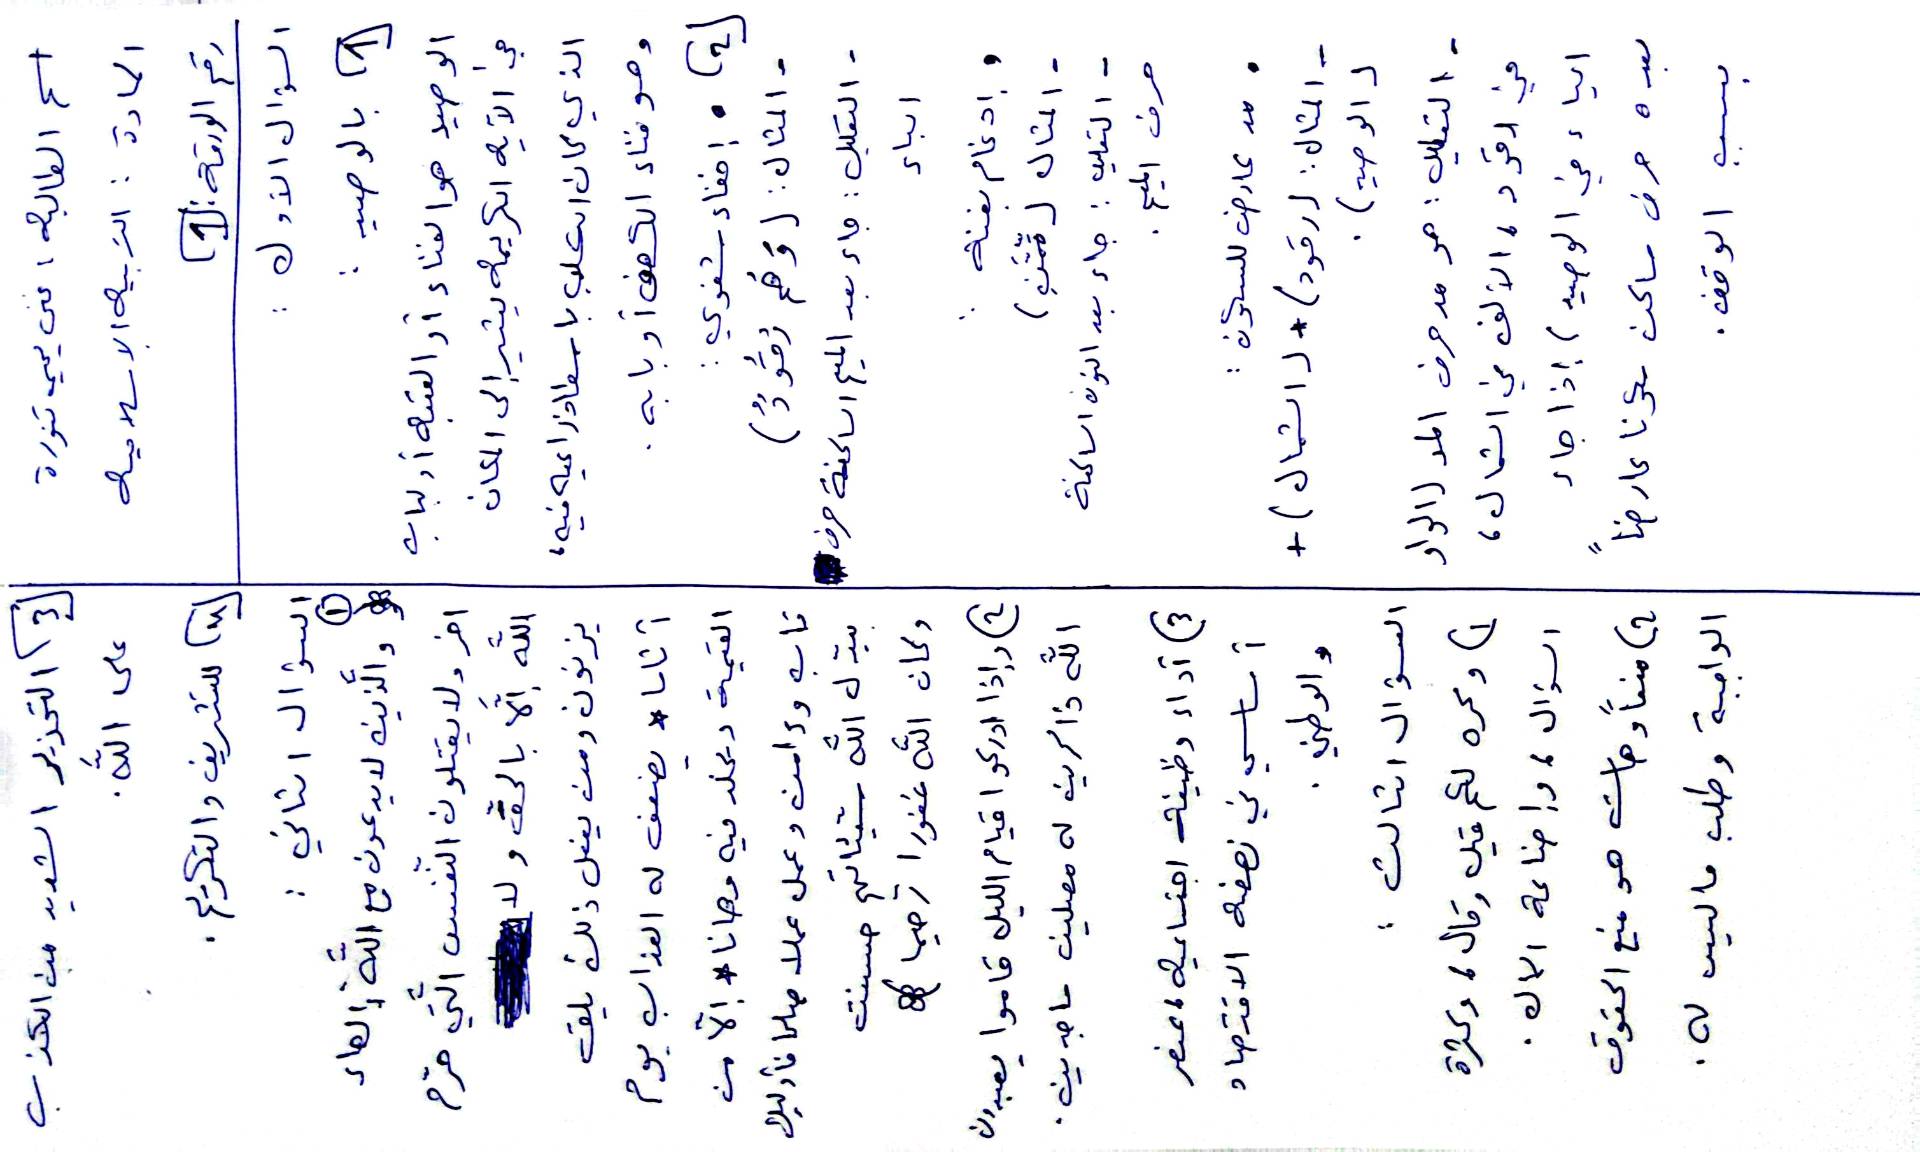 اسم الطالبة: منى يحيى تنورة
المادة: التربية الاسلامية
رقم الورقة: [1]
السؤال الأول:
[1] بالوصيد:
الوصيد هو الفناء أو العتبة أو الباب
في الآية الكريمة يشير إلى المكان
الذي كان الكلب باسطا ذراعيه فيه،
وهو فناء الكهف أو بابه.
[2] • إخفاء شفوي:
- المثال: (وَهُم رُقُودٌ)
- التعليل: جاء بعد الميم الساكنة حرف
الباء
• إدغام بغنة:
- المثال
- التعليل: جاء بعد النون الساكنة
حرف الميم.
• مد عارض للسكون:
- المثال: (رقود) * (الشمال) +
(الوصيد).
- التعليل: هو مد حرف المد (الواو
في رقود، الألف في الشمال،
الياء في الوصيد) إذا جاء
بعده حرف ساكن سكونا عارضاً
بسبب الوقف.
[3] التحذير الشديد من الكذب
على اللّه.
للتشريف والتكريم.
السؤال الثاني:
① والّذين لا يدعون مع اللّه إلها
اخر ولا يقتلون النّفس الّتي حرّم
اللّه إلّا بالحق ولا
يزنون ومن يفعل ذلك يلق
أثاما * يضعف له العذاب يوم
القيمة ويخلد فيه مهانا * إلّا من
تاب وءامن وعمل عملا صالحا فأوليك
يبدّل اللّه سيّئاتهم حسنت
وكان اللّه غفورا رّحيما
② وإذا ادركوا قيام الليل قاموا يعبدون
اللّه ذاكرين له مصلين ساجدين.
③ أداء وظيفة اجتماعية، عنصر
أساسي في نهضة الاقتصاد
والوطني.
السؤال الثالث:
1) وكره لكم قيل وقال، وكثرة
السؤال، وإضاعة المال.
2) منعاً وهات هو منع الحقوق
الواجبة وطلب ماليس له.